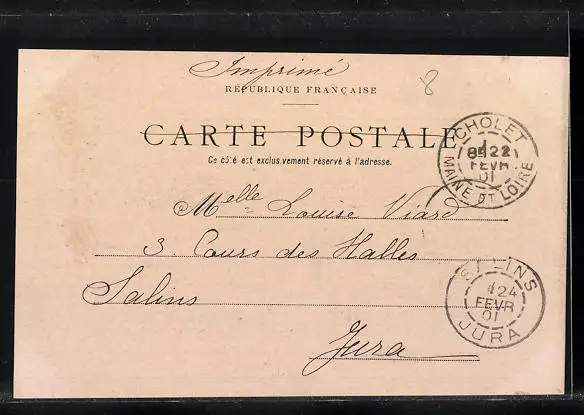 Imprimé
8
RÉPUBLIQUE FRANÇAISE
CARTE POSTALE
Ce côté est exclusivement réservé à l'adresse.
CHOLET
22
FEVR
01
MAINE ET LOIRE
Melle Louise Viard
3. Cours des Halles
Salins
Jura
SALINS
24
FEVR
01
JURA